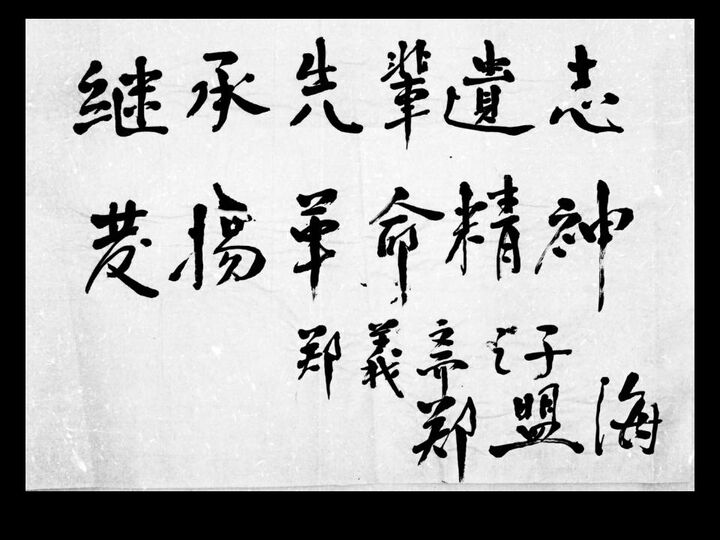 继承先輩遺志
发揚革命精神
郑義斋之子
郑盟海